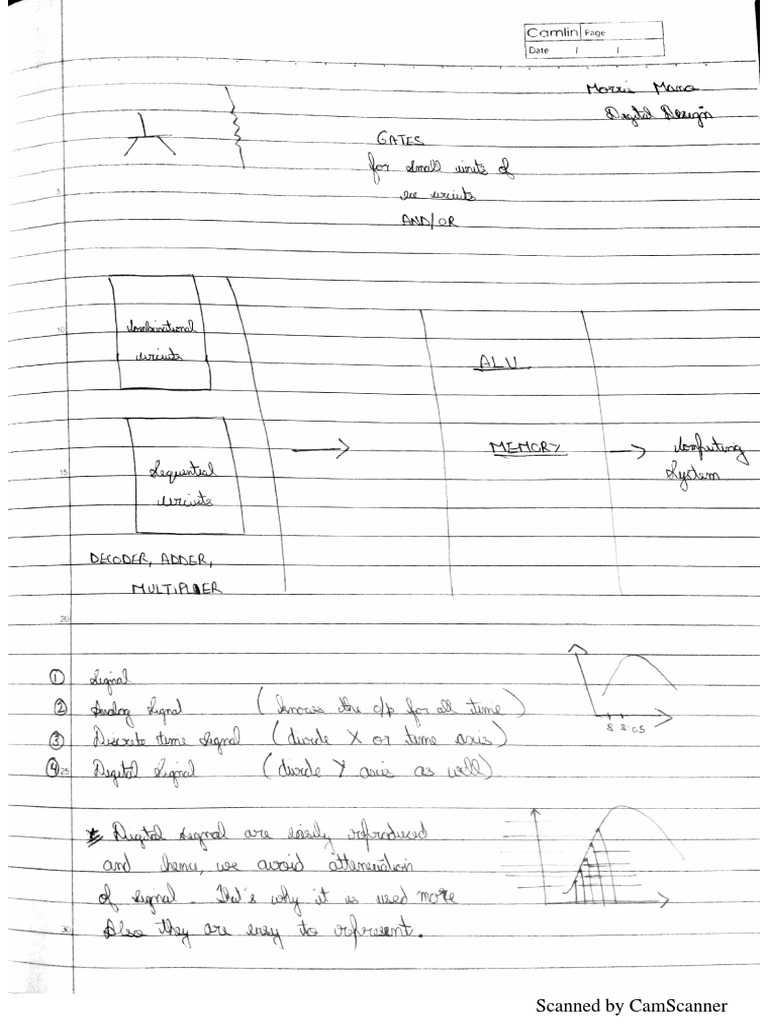 Camlin Page
Date / /
Morris Mano
Digital Design
GATES
for small units of
ckt circuits
AND/OR
Combinational
circuits
ALU
Sequential
circuits
MEMORY
Computing
System
DECODER, ADDER,
MULTIPLIER
5
10
15
20
25
30
① Signal
② Analog Signal (knows the o/p for all time)
③ Discrete time Signal (divide X or time axis)
④ Digital Signal (divide Y axis as well)
8 8.05
* Digital signal are easily reproduced
and hence, we avoid attenuation
of signal. That's why it is used more
Also they are easy to represent.
Scanned by CamScanner